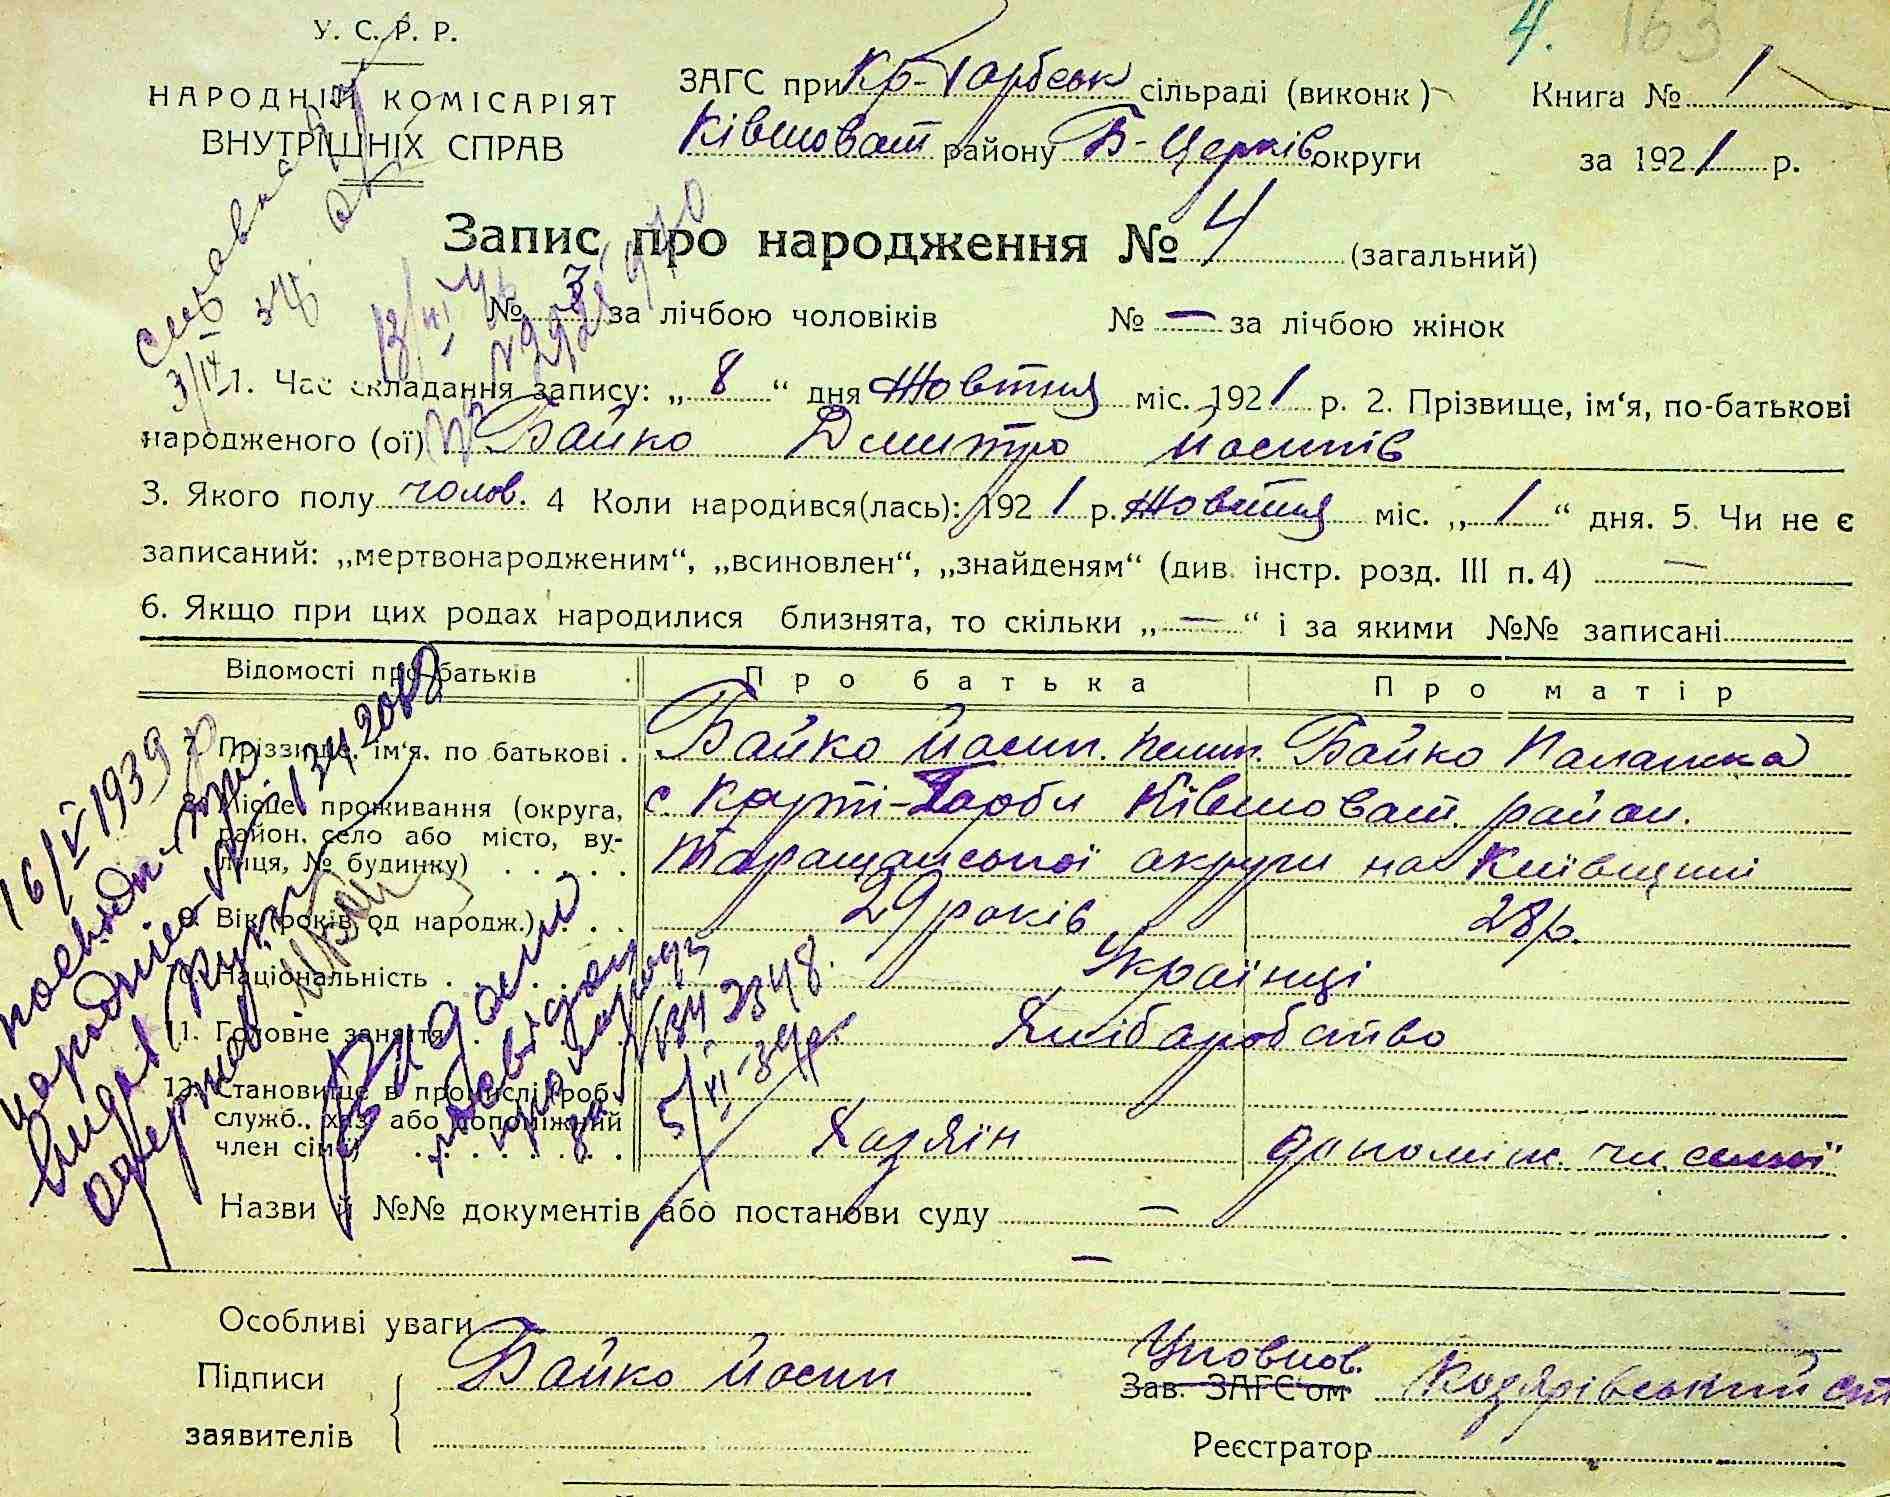 4. 163
У. С. Р. Р.
НАРОДНІЙ КОМІСАРІЯТ
ВНУТРІШНІХ СПРАВ
ЗАГС при Кр-Горбськ сільраді (виконк)
Ківшоват району Б-Церків округи
Книга № 1
за 1921 р.
Запис про народження № 4 (загальний)
№ 3 за лічбою чоловіків № — за лічбою жінок
1. Час складання запису: „8“ дня Жовтня міс. 1921 р. 2. Прізвище, ім‘я, по-батькові
народженого (ої) Байко Дмитро Йосипів
3. Якого полу чолов. 4 Коли народився(лась): 1921 р. Жовтня міс. „1“ дня. 5. Чи не є
записаний: „мертвонародженим“, „всиновлен“, „знайденям“ (див. інстр. розд. III п. 4) —
6. Якщо при цих родах народилися близнята, то скільки „—“ і за якими №№ записані
Відомості про батьків Про батька Про матір
7. Пріззище, ім‘я. по батькові . Байко Йосип. Пелип. Байко Палашка
8. Місце проживання (округа, с. Круті-Горби Ківшоват. район.
район, село або місто, ву-
лиця, № будинку) . . . . . Таращанської округи на Київщині
9. Вік (років од народж.) . . . 29 років 28 р.
10. Національність . . . Українці
11. Головне заняття . . . Хліборобство
12. Становище в промислі (роб.
служб., хаз. або допоміжний
член сім‘ї) . . . . . . . . Хазяїн допоміж. чл. семьї
Назви й №№ документів або постанови суду —
—
Особливі уваги
Підписи Байко Йосип
заявителів
Уповнов.
Зав. ЗАГС‘ом Козярівський
Реєстратор
3/IV 38
16/V 1939 р
Видани
№ 134 2348
5/VI-39р.